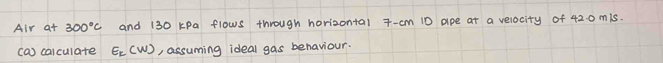 Air at 300°C and 130 kPa flows through horizontal 7-cm ID pipe at a velocity of 42.0 m/s.
(a) calculate Ek (W), assuming ideal gas behaviour.